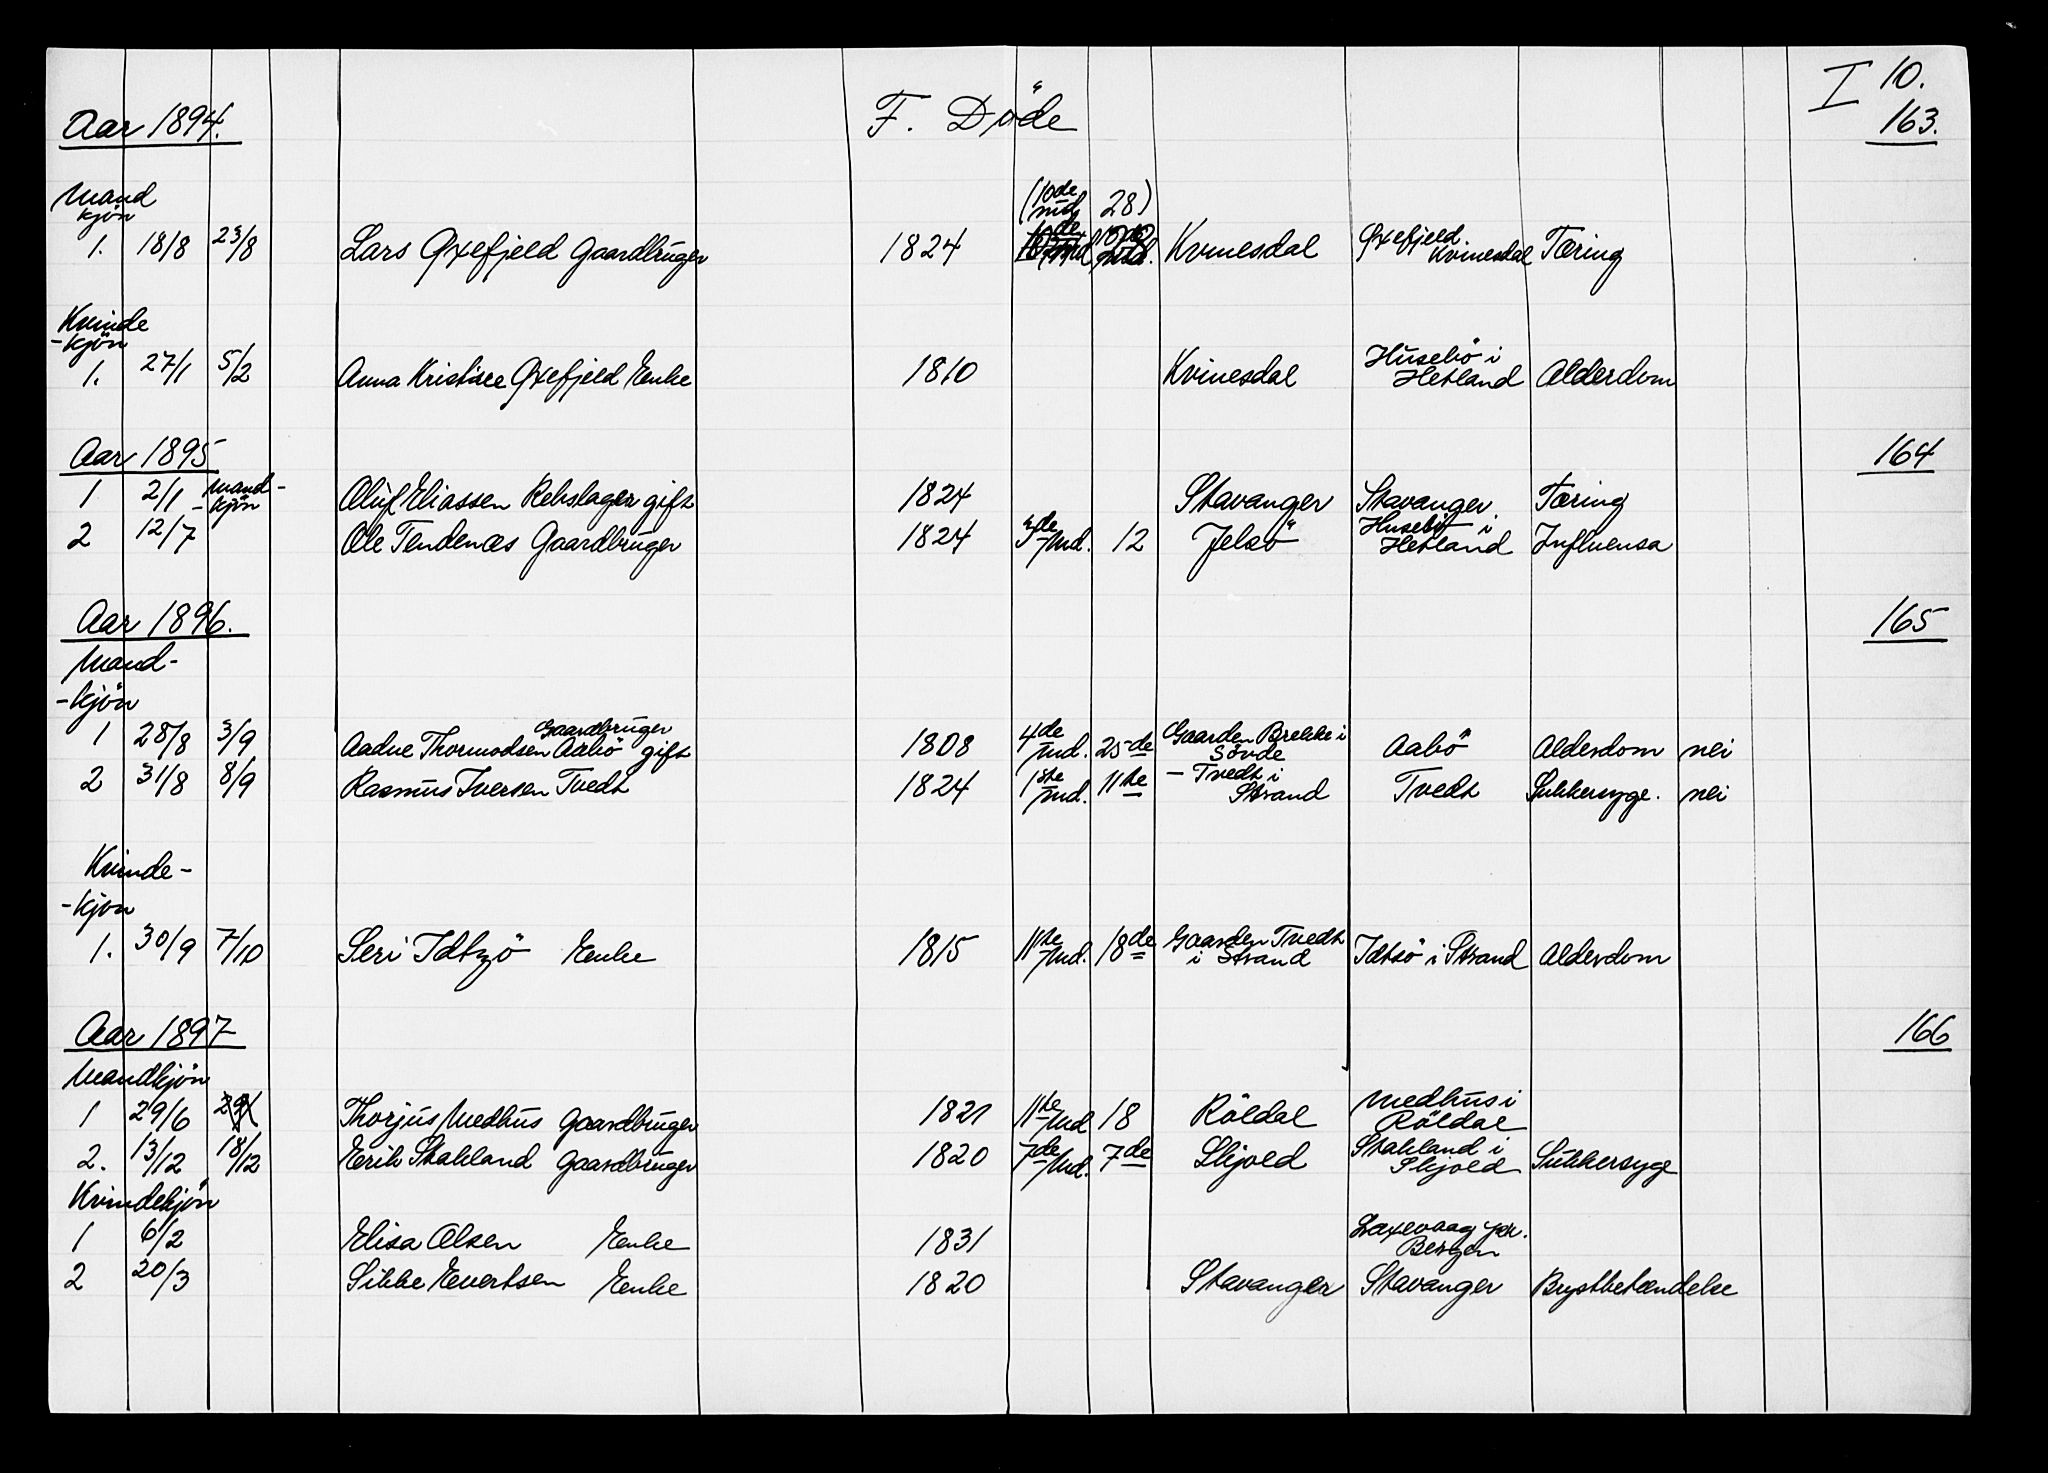 I 10.
Aar 1894. F. Döde 163.
Mand
kjön (10de Md. 28)
1. 18/8 23/8 Lars Oxefjeld Gaardbruger 1824 Kvinesdal Oxefjeld Kvinesdal Tæring
Kvinde
-kjön
1. 27/1 5/2 Anna Kristine Oxefjeld Enke 1810 Kvinesdal Husebö i Hetland Alderdom
Aar 1895 164
1 2/1 Mand-
-kjön Oluf Eliassen Rebslager gift 1824 Stavanger Stavanger Tæring
2 12/7 Ole Tendenæs Gaardbruger 1824 3de Md. 12 Jelsö Husebö i Hetland Influensa
Aar 1896. 165
Mand-
-kjön
1 28/8 3/9 Aadne Thormodsen Aabö Gaardbruger gift 1808 4de Md. 25de Gaarden Brekke i Sövde Aabö Alderdom nei
2 31/8 8/9 Rasmus Iversen Tvedt 1824 1ste Md. 11te - Tvedt i Strand Tvedt Sukkersyge. nei
Kvinde-
-kjön
1. 30/9 7/10 Seri Idtzö Enke 1815 11te Md. 18de Gaarden Tvedt i Strand Idtsö i Strand Alderdom
Aar 1897 166
Mandkjön
1 29/6 Thorjus Medhus Gaardbruger 1821 11te Md 18 Röldal Medhus i Röldal
2. 13/12 18/12 Erik Stakland Gaardbruger 1820 7de Md. 7de Skjold Stakland i Skjold Sukkersyge
Kvindekjön
1 6/2 Elisa Olsen Enke 1831 Laxevaag pr. Bergen
2 20/3 Sikke Evertsen Enke 1820 Stavanger Stavanger Brystbetændelse